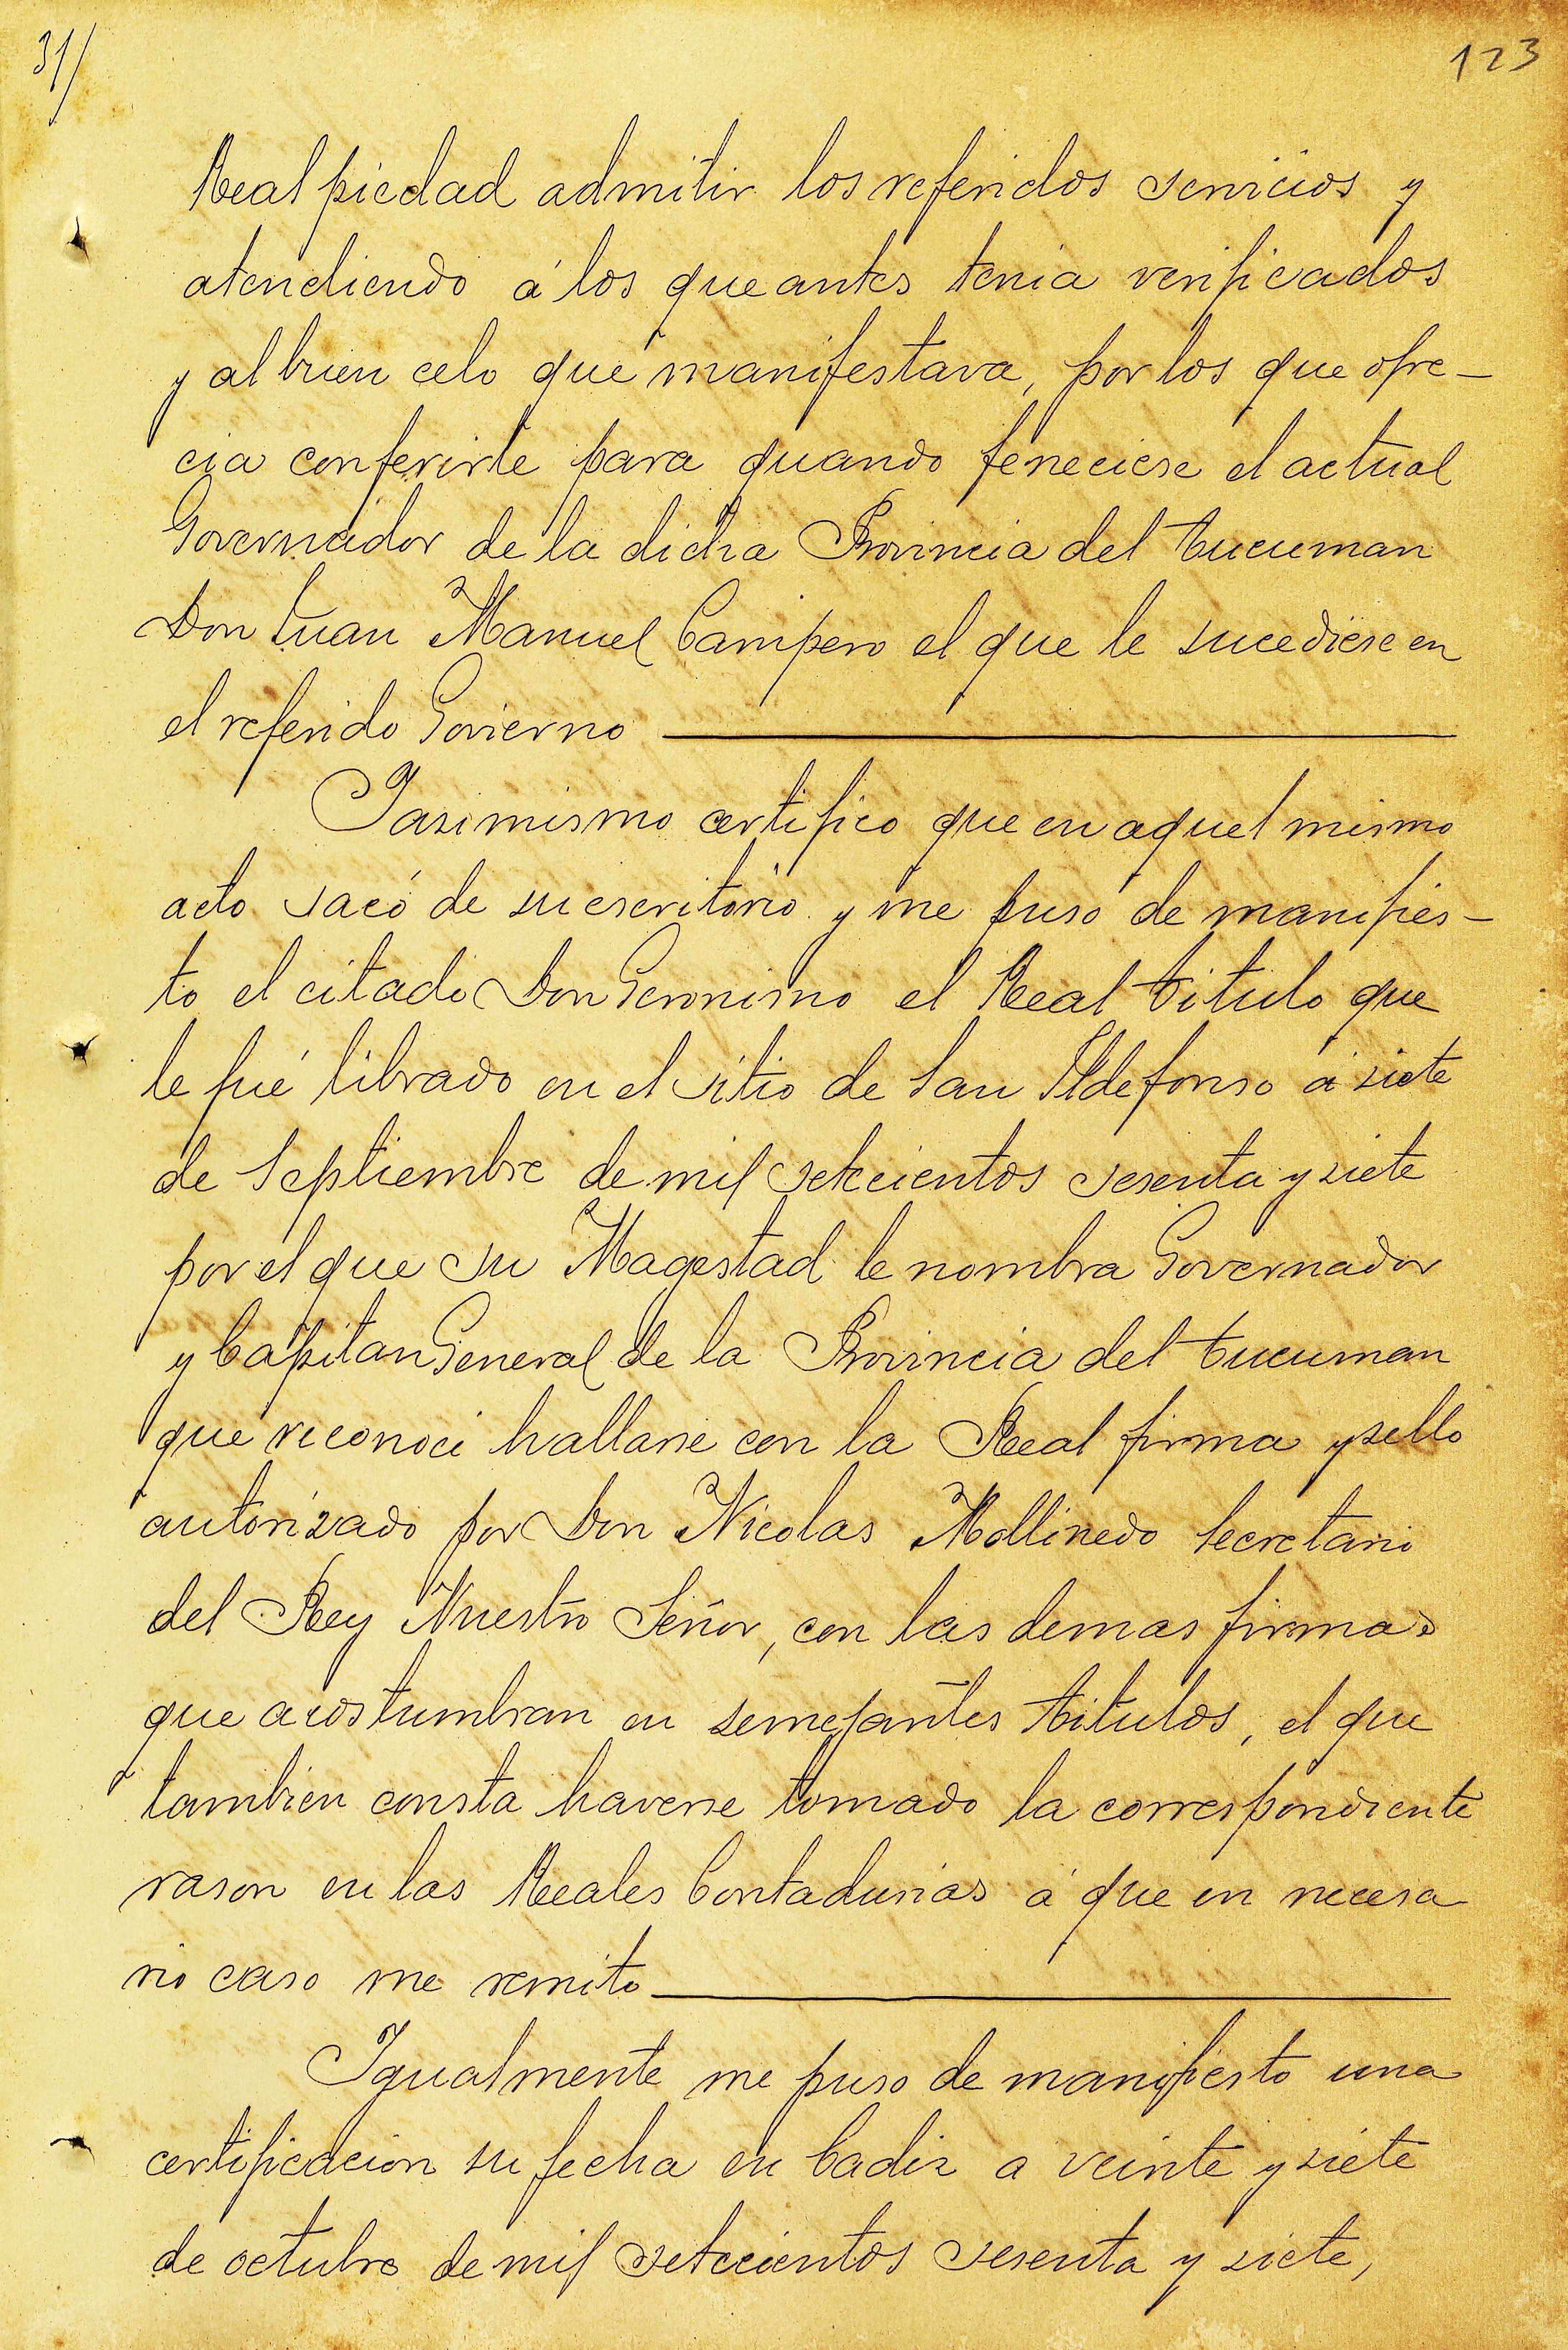 31/
123
Real piedad admitir los referidos servicios y
atendiendo á los que antes tenia verificados
y al buen celo que manifestava, por los que ofre-
cia conferirle para quando feneciese el actual
Governador de la dicha Provincia del Tucuman
Don Juan Manuel Campero el que le sucediese en
el referido Govierno
Yasimismo certifico que en aquel mismo
acto sacó de su escritorio y me puso de manifies-
to el citado Don Geronimo el Real Titulo que
le fué librado en el sitio de San Ildefonso á siete
de Septiembre de mil setecientos sesenta y siete
por el que su Magestad le nombra Governador
y Capitan General de la Provincia del Tucuman
que reconoci hallarse con la Real firma y sello
autorizado por Don Nicolas Mollinedo Secretario
del Rey Nuestro Señor, con las demas firmas
que acostumbran en semejantes titulos, el que
tambien consta haverse tomado la correspondiente
rason en las Reales Contadurias á que en necesa
rio caso me remito
Igualmente me puso de manifiesto una
certificacion su fecha en Cadiz a veinte y siete
de octubre de mil setecientos sesenta y siete,